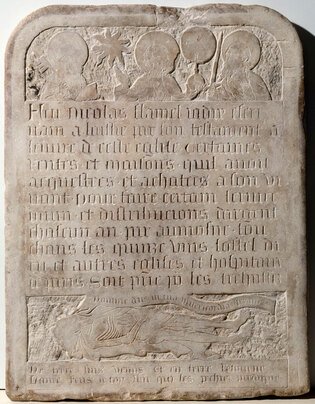 Feu nicolas flamel iadis escri
uain a laissie par son testament a
leuure de ceste eglise certaines
rentes et maisons quil auoit
acquestees et achatees a son vi
uant pour faire certain seruice
diuin et distribucions dargent
chascun an par aumosne tou
chans les quinze vins lostel di
eu et autres eglises et hospitaux
a paris Soit prie pour les trespasses
Domine deus in tua misericordia speraui
De terre suis venus et en terre retourne
Lame rens a toy ihu qui les pechies pardonne